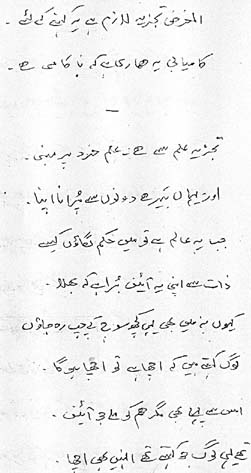 المختصر تجزیہ لازم ہے یہ کہنے کے لئے۔
کامیابی یہ ہماری ہے کہ ناکامی ہے۔
—
تجزیہ علم سے ہے۔ علم خرد پر مبنی۔
اور یہاں تیرے دونوں سے پرانا اپنا۔
جب یہ عالم ہے تو میں حکم لگاؤں کیسے
ذات سے اپنی یہ آئین برا ہے کہ بھلا۔
کیوں نہ میں بھی یہی کچھ سوچ کے چپ رہ جاؤں
لوگ کہتے ہیں کہ اچھا ہے تو اچھا ہوگا۔
اس سے پہلے بھی مگر ہم کو ملے جو آئین۔
تھے یہی لوگ جو کہتے تھے انہیں بھی اچھا۔